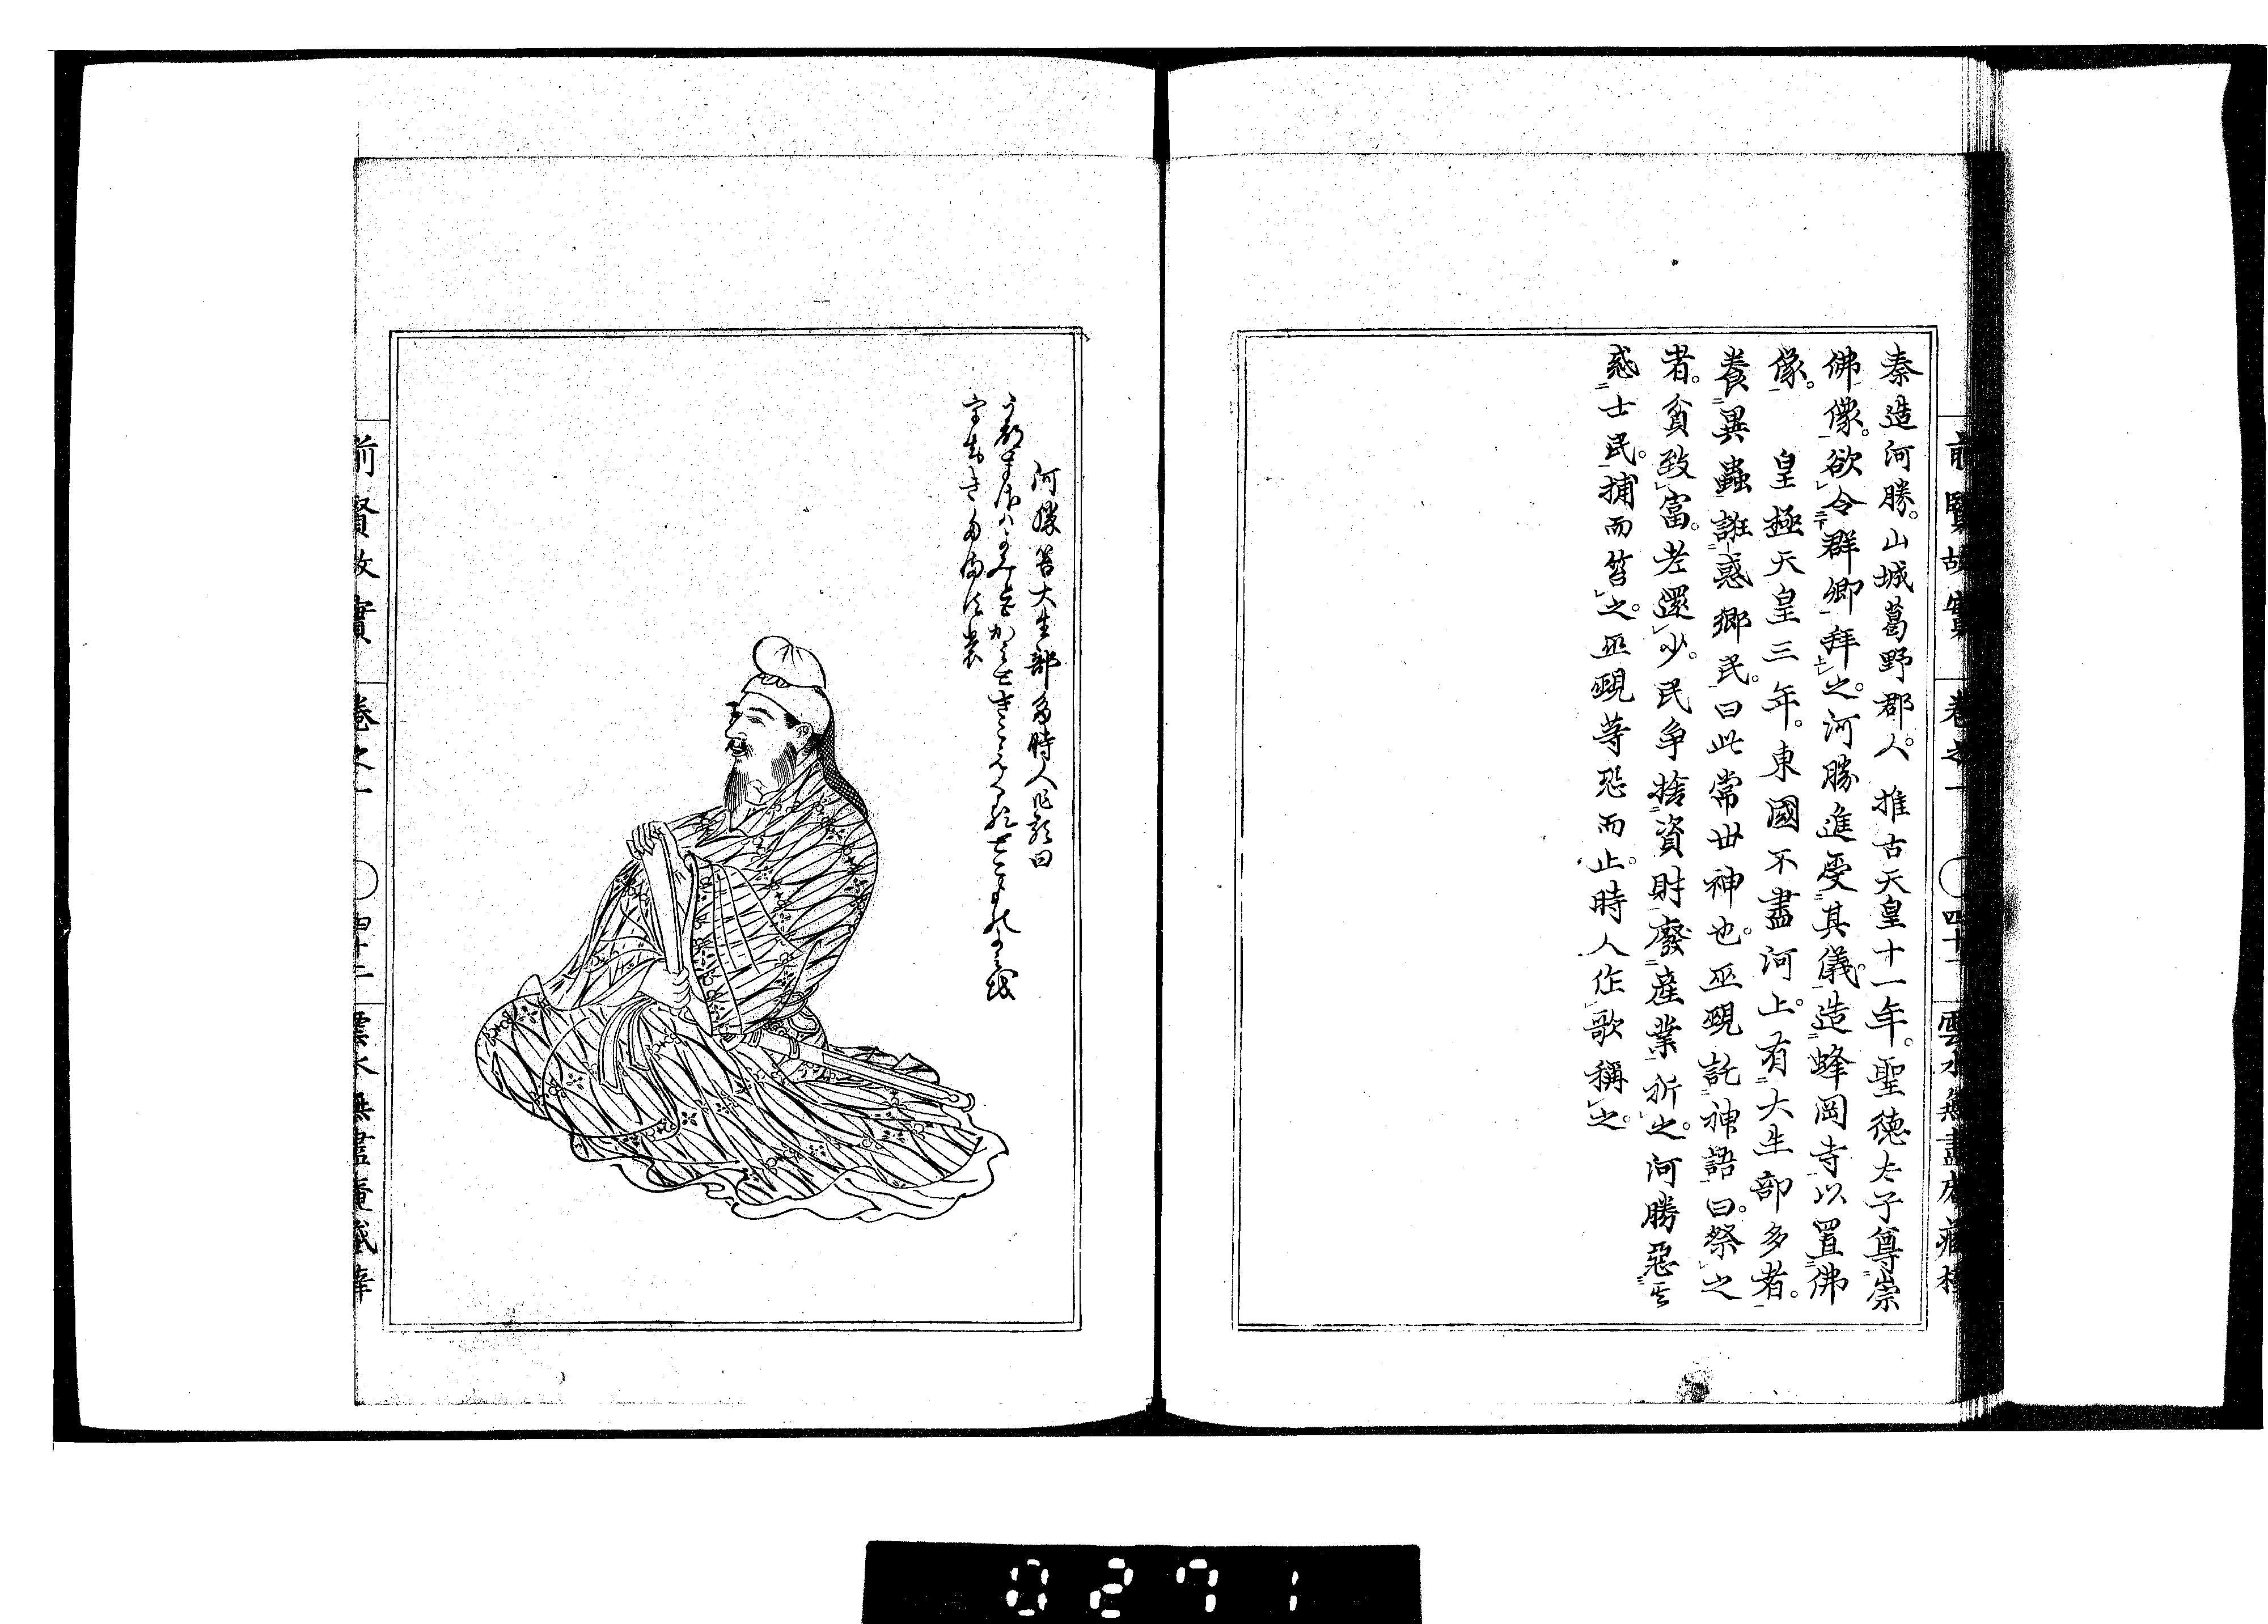 前賢故實 卷之一 〇四十一 雲水無盡庵藏梓
秦造河勝。山城葛野郡人。推古天皇十一年。聖德太子尊崇
佛像。欲令群卿拜之。河勝進受其儀。造蜂岡寺以置佛
像。　皇極天皇三年。東國不盡河上。有大生部多者。
養異蟲誑惑鄉民。曰此常世神也。巫覡託神語曰。祭之
者。貧致富。老還少。民爭捨資財廢產業祈之。河勝惡其
惑士民。捕而笞之。巫覡等恐而止。時人作歌稱之。
河勝笞大生部多時人作歌曰
前賢故實 卷之一 〇四十二 雲水無盡庵藏梓
0271